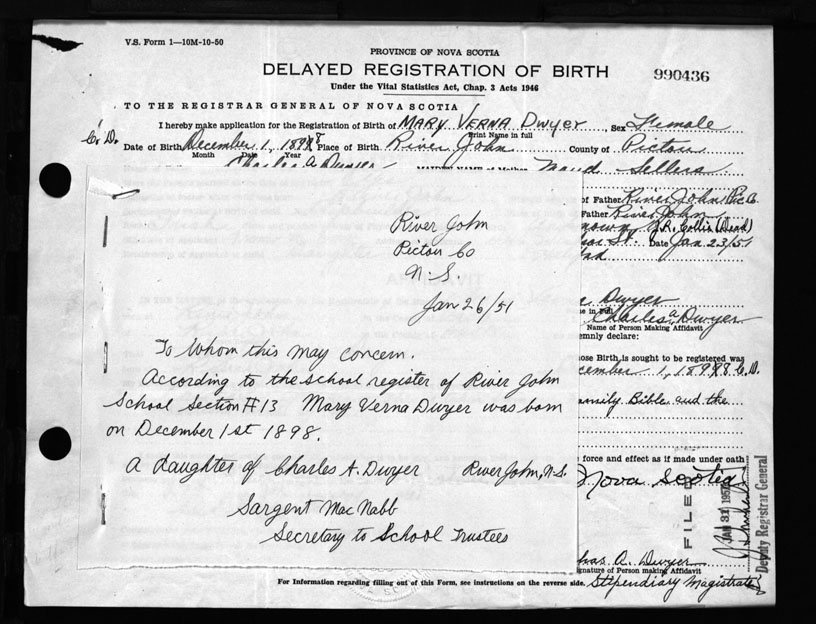 V.S. Form 1—10M-10-50
PROVINCE OF NOVA SCOTIA
DELAYED REGISTRATION OF BIRTH
990436
Under the Vital Statistics Act, Chap. 3 Acts 1946
TO THE REGISTRAR GENERAL OF NOVA SCOTIA
I hereby make application for the Registration of Birth of MARY VERNA DWYER, Sex Female
Print Name in full
C. D. Date of Birth December 1, 1898 Place of Birth River John County of Pictou
Month Date Year
Charles A Dwyer Maud Sellers
of Father River John Pic Co
Father River John
(Dead)
Date Jan 23/51
River John
Pictou Co
N. S.
Jan 26/51
To Whom this may concern.
According to the school register of River John
School Section #13 Mary Verna Dwyer was born
on December 1st 1898.
A daughter of Charles A. Dwyer River John, N.S.
Sargent MacNabb
Secretary to School Trustees
Dwyer
Charles A Dwyer
Name of Person Making Affidavit
emnly declare:
ose Birth is sought to be registered was
cember 1, 1898 C. D.
amily Bible and the
force and effect as if made under oath
Nova Scotia
FILED
JAN 31 1951
Deputy Registrar General
has A. Dwyer
ignature of Person making Affidavit
Stipendiary Magistrate
For Information regarding filling out of this Form, see instructions on the reverse side.